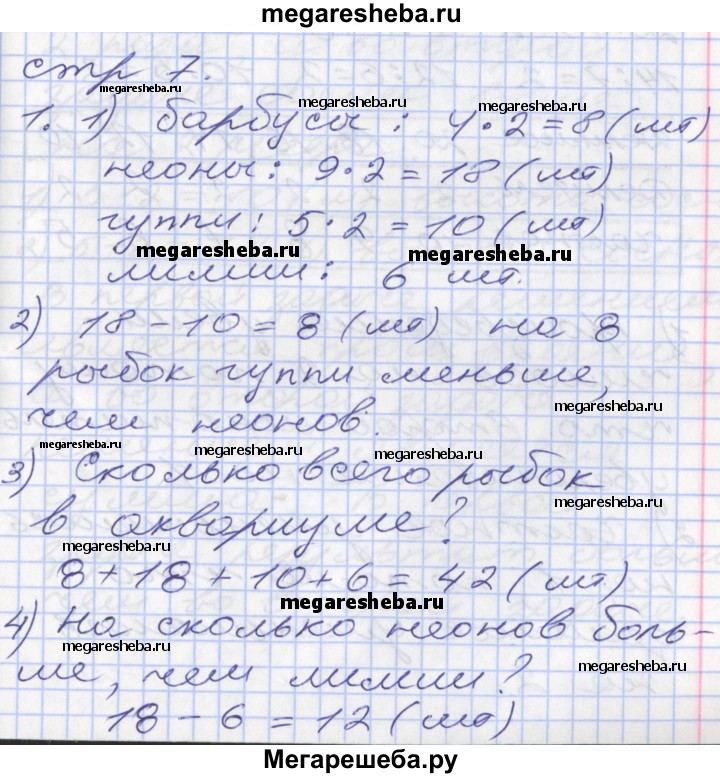 megaresheba.ru
стр 7.
megaresheba.ru
megaresheba.ru megaresheba.ru
1. 1) барбусы: 4·2=8 (шт)
неоны: 9·2=18 (шт)
гуппи: 5·2=10 (шт)
megaresheba.ru megaresheba.ru
лилии: 6 шт.
2) 18-10=8 (шт) на 8
рыбок гуппи меньше,
megaresheba.ru
чем неонов.
megaresheba.ru megaresheba.ru megaresheba.ru
3) Сколько всего рыбок
megaresheba.ru
в аквариуме?
megaresheba.ru
8+18+10+6=42 (шт)
megaresheba.ru
4) На сколько неонов боль-
megaresheba.ru
ше, чем лилии?
18-6=12 (шт)
Мегарешеба.ру